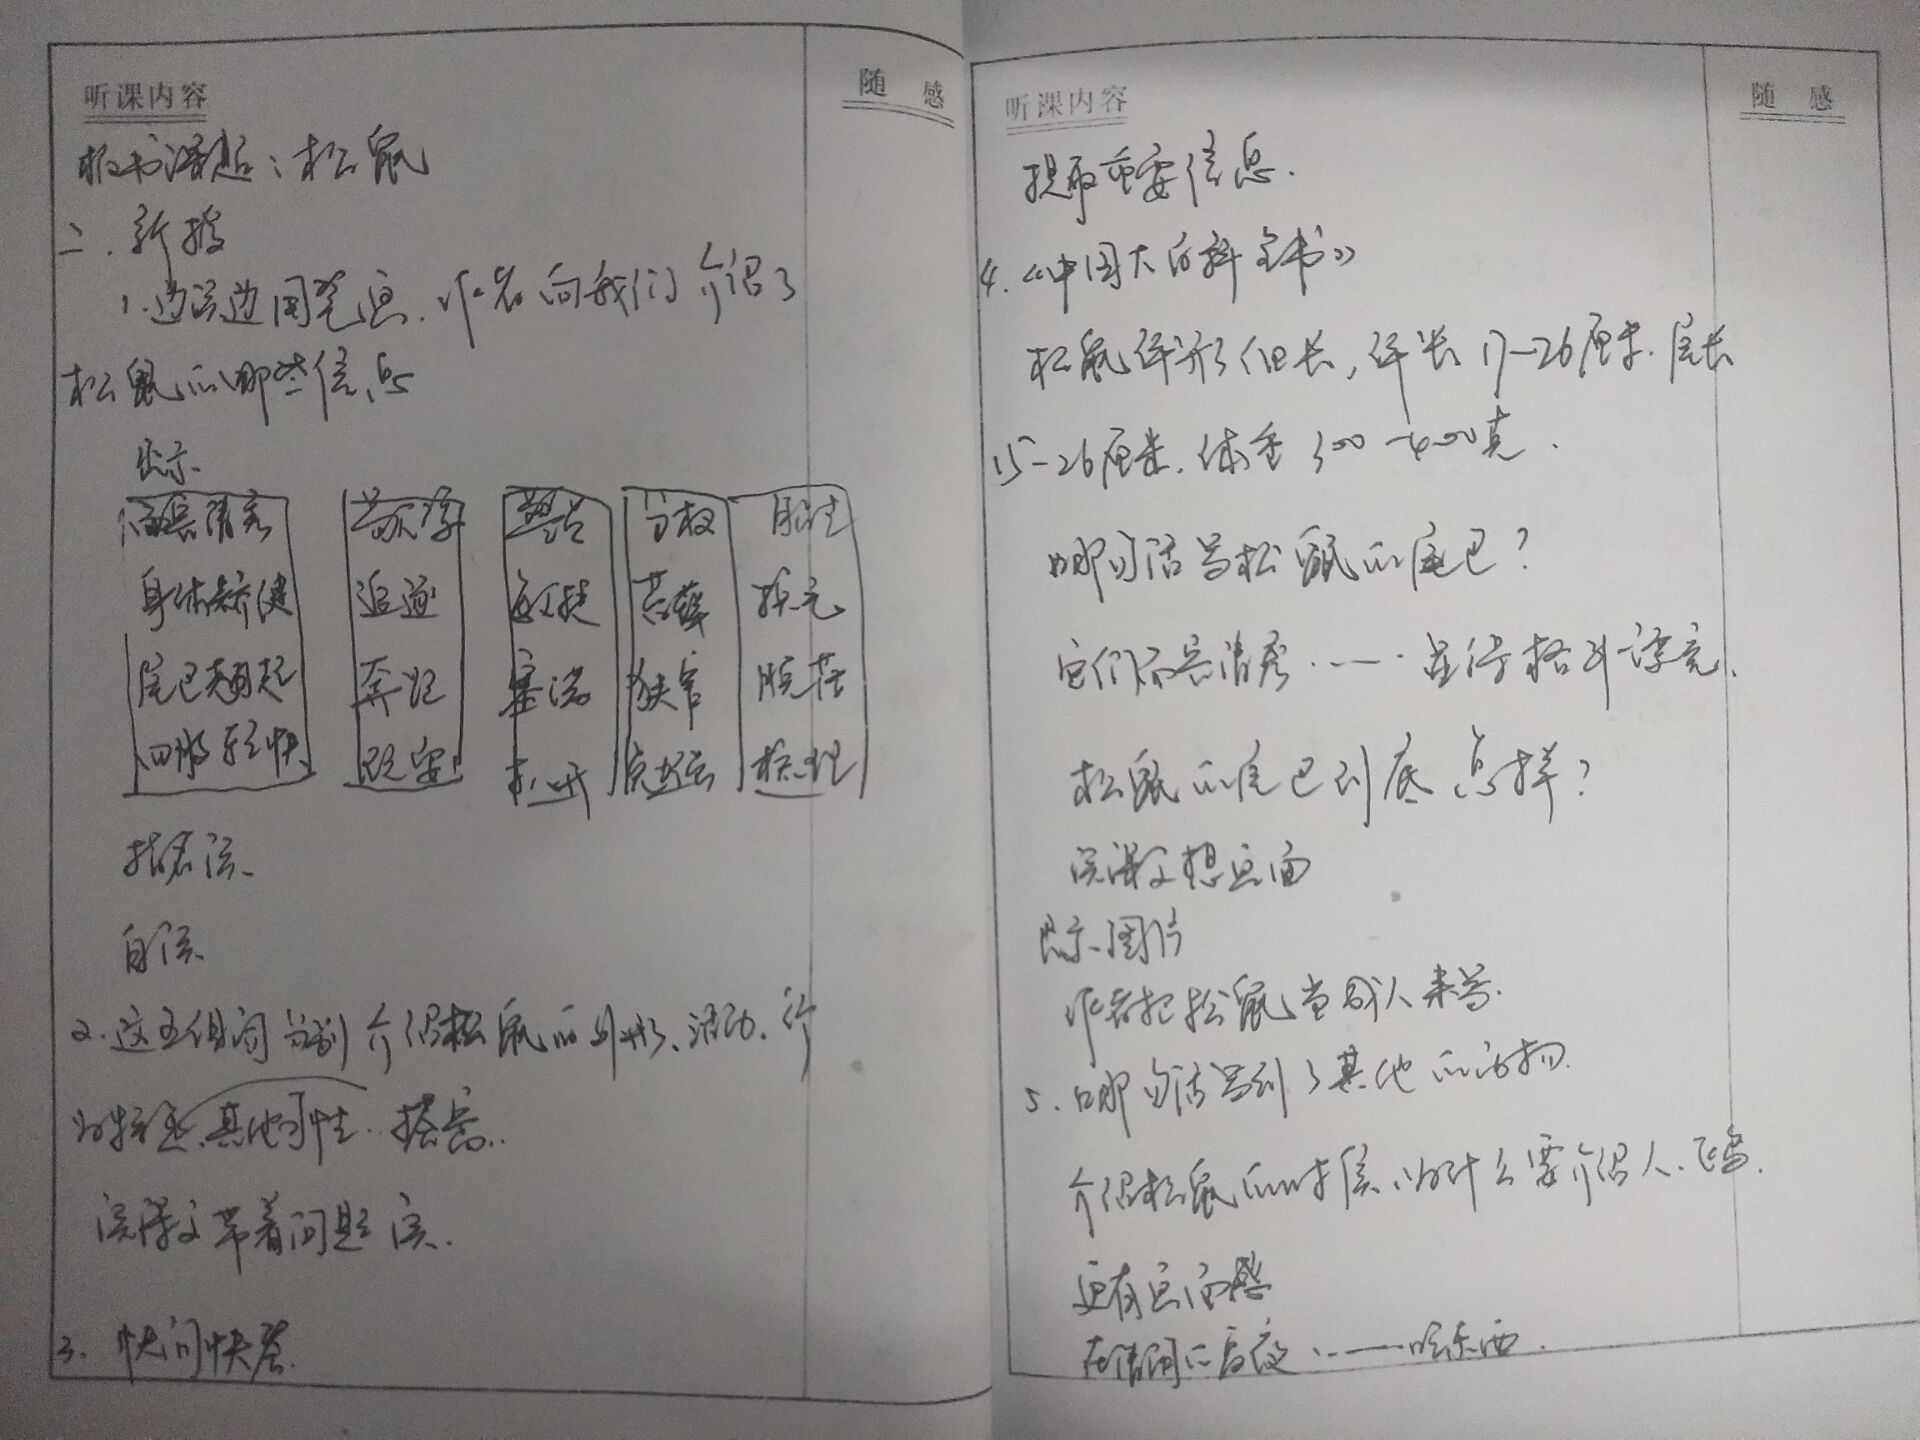 听课内容
随 感
板书课题：松鼠
二. 新授
1. 边读边用笔画. 作者向我们介绍了
松鼠的哪些信息
出示
面容清秀 警觉 分杈 胎生
身体矫健 追逐 敏捷 苔藓
尾巴翘起 奔 狭窄 脱落
四肢轻快 梳理
指名读.
自读.
2. 这五组词分别介绍松鼠的外形、活动、行
为特征、其他习性. 搭窝..
读课文带着问题读.
3. 快问快答.
听课内容
随 感
提取重要信息.
4. 《中国大百科全书》
松鼠体形细长, 体长17-26厘米. 尾长
15-26厘米. 体重300-400克.
哪句话写松鼠的尾巴?
它们面容清秀……显得格外漂亮.
松鼠的尾巴到底怎样?
读课文想画面
出示图片
作者把松鼠当成人来写.
5. 哪句话写到了其他的动物.
介绍松鼠的时候, 为什么要介绍人、飞鸟.
更有画面感
在 ……吃东西.